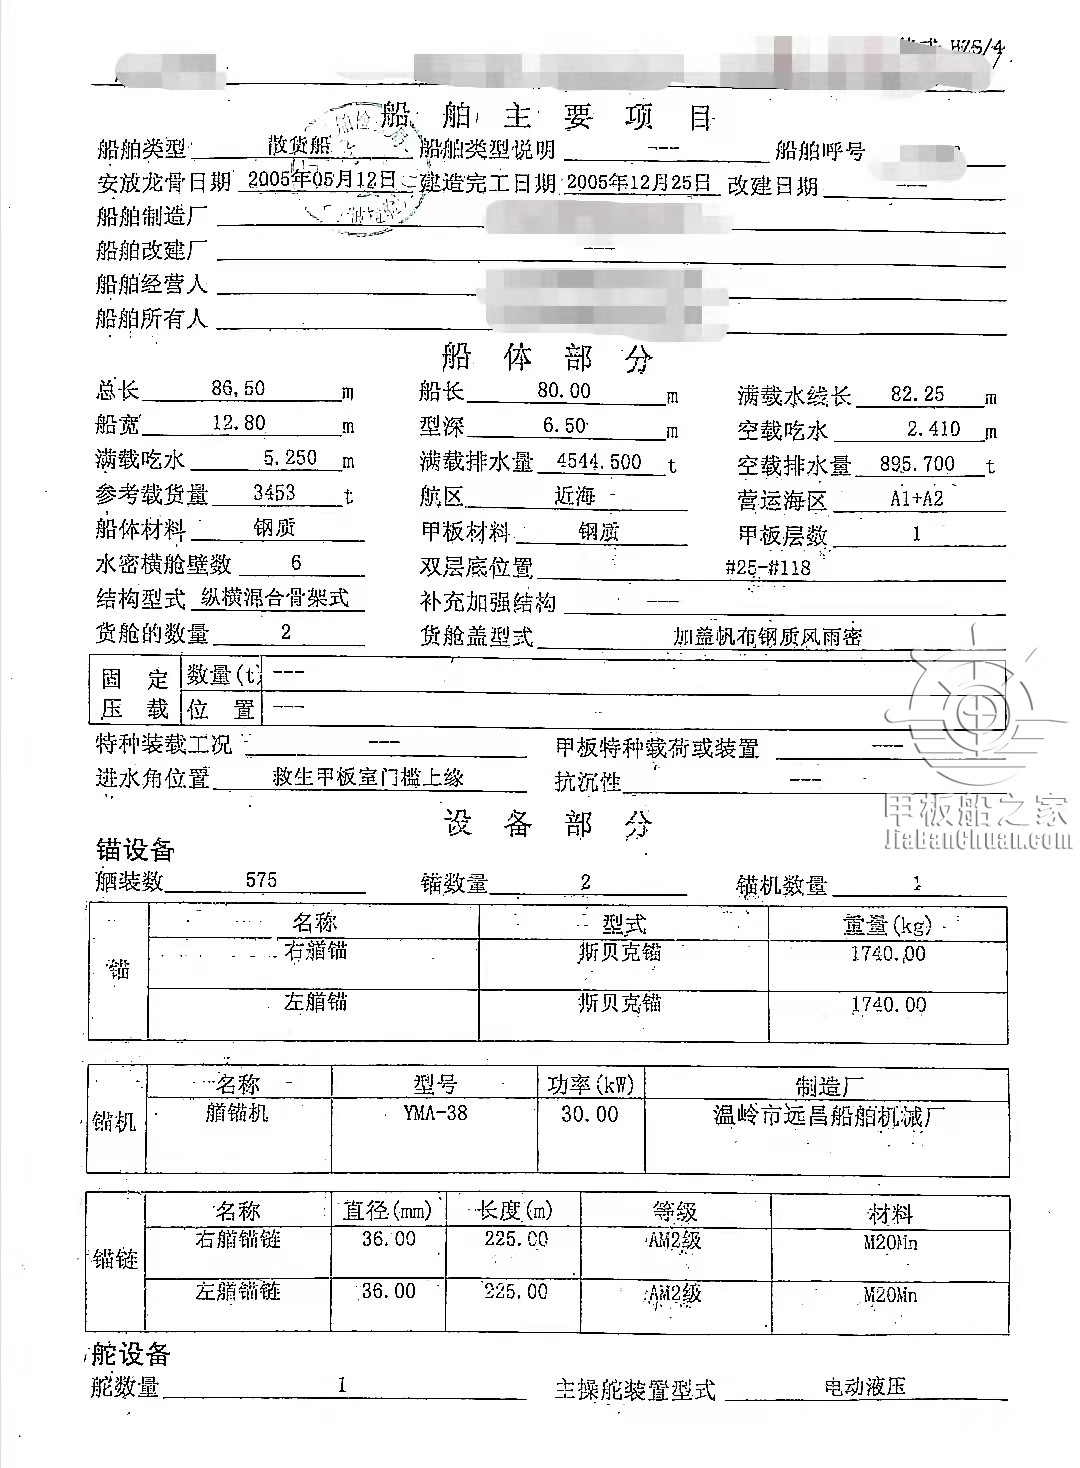 HZS/4
船舶主要项目
船舶类型 散货船 船舶类型说明 --- 船舶呼号
安放龙骨日期 2005年05月12日 建造完工日期 2005年12月25日 改建日期 ---
船舶制造厂
船舶改建厂 ---
船舶经营人
船舶所有人
船体部分
总长 86.50 m 船长 80.00 m 满载水线长 82.25 m
船宽 12.80 m 型深 6.50 m 空载吃水 2.410 m
满载吃水 5.250 m 满载排水量 4544.500 t 空载排水量 895.700 t
参考载货量 3453 t 航区 近海 营运海区 A1+A2
船体材料 钢质 甲板材料 钢质 甲板层数 1
水密横舱壁数 6 双层底位置 #25-#118
结构型式 纵横混合骨架式 补充加强结构 ---
货舱的数量 2 货舱盖型式 加盖帆布钢质风雨密
固定压载 数量(t) ---
位置 ---
特种装载工况 --- 甲板特种载荷或装置 ---
进水角位置 救生甲板室门槛上缘 抗沉性 ---
甲板船之家
JiaBanChuan.com
设备部分
锚设备
舾装数 575 锚数量 2 锚机数量 1
锚 名称 型式 重量(kg)
右艏锚 斯贝克锚 1740.00
左艏锚 斯贝克锚 1740.00
锚机 名称 型号 功率(kW) 制造厂
艏锚机 YMA-38 30.00 温岭市远昌船舶机械厂
锚链 名称 直径(mm) 长度(m) 等级 材料
右艏锚链 36.00 225.00 AM2级 M20Mn
左艏锚链 36.00 225.00 AM2级 M20Mn
舵设备
舵数量 1 主操舵装置型式 电动液压